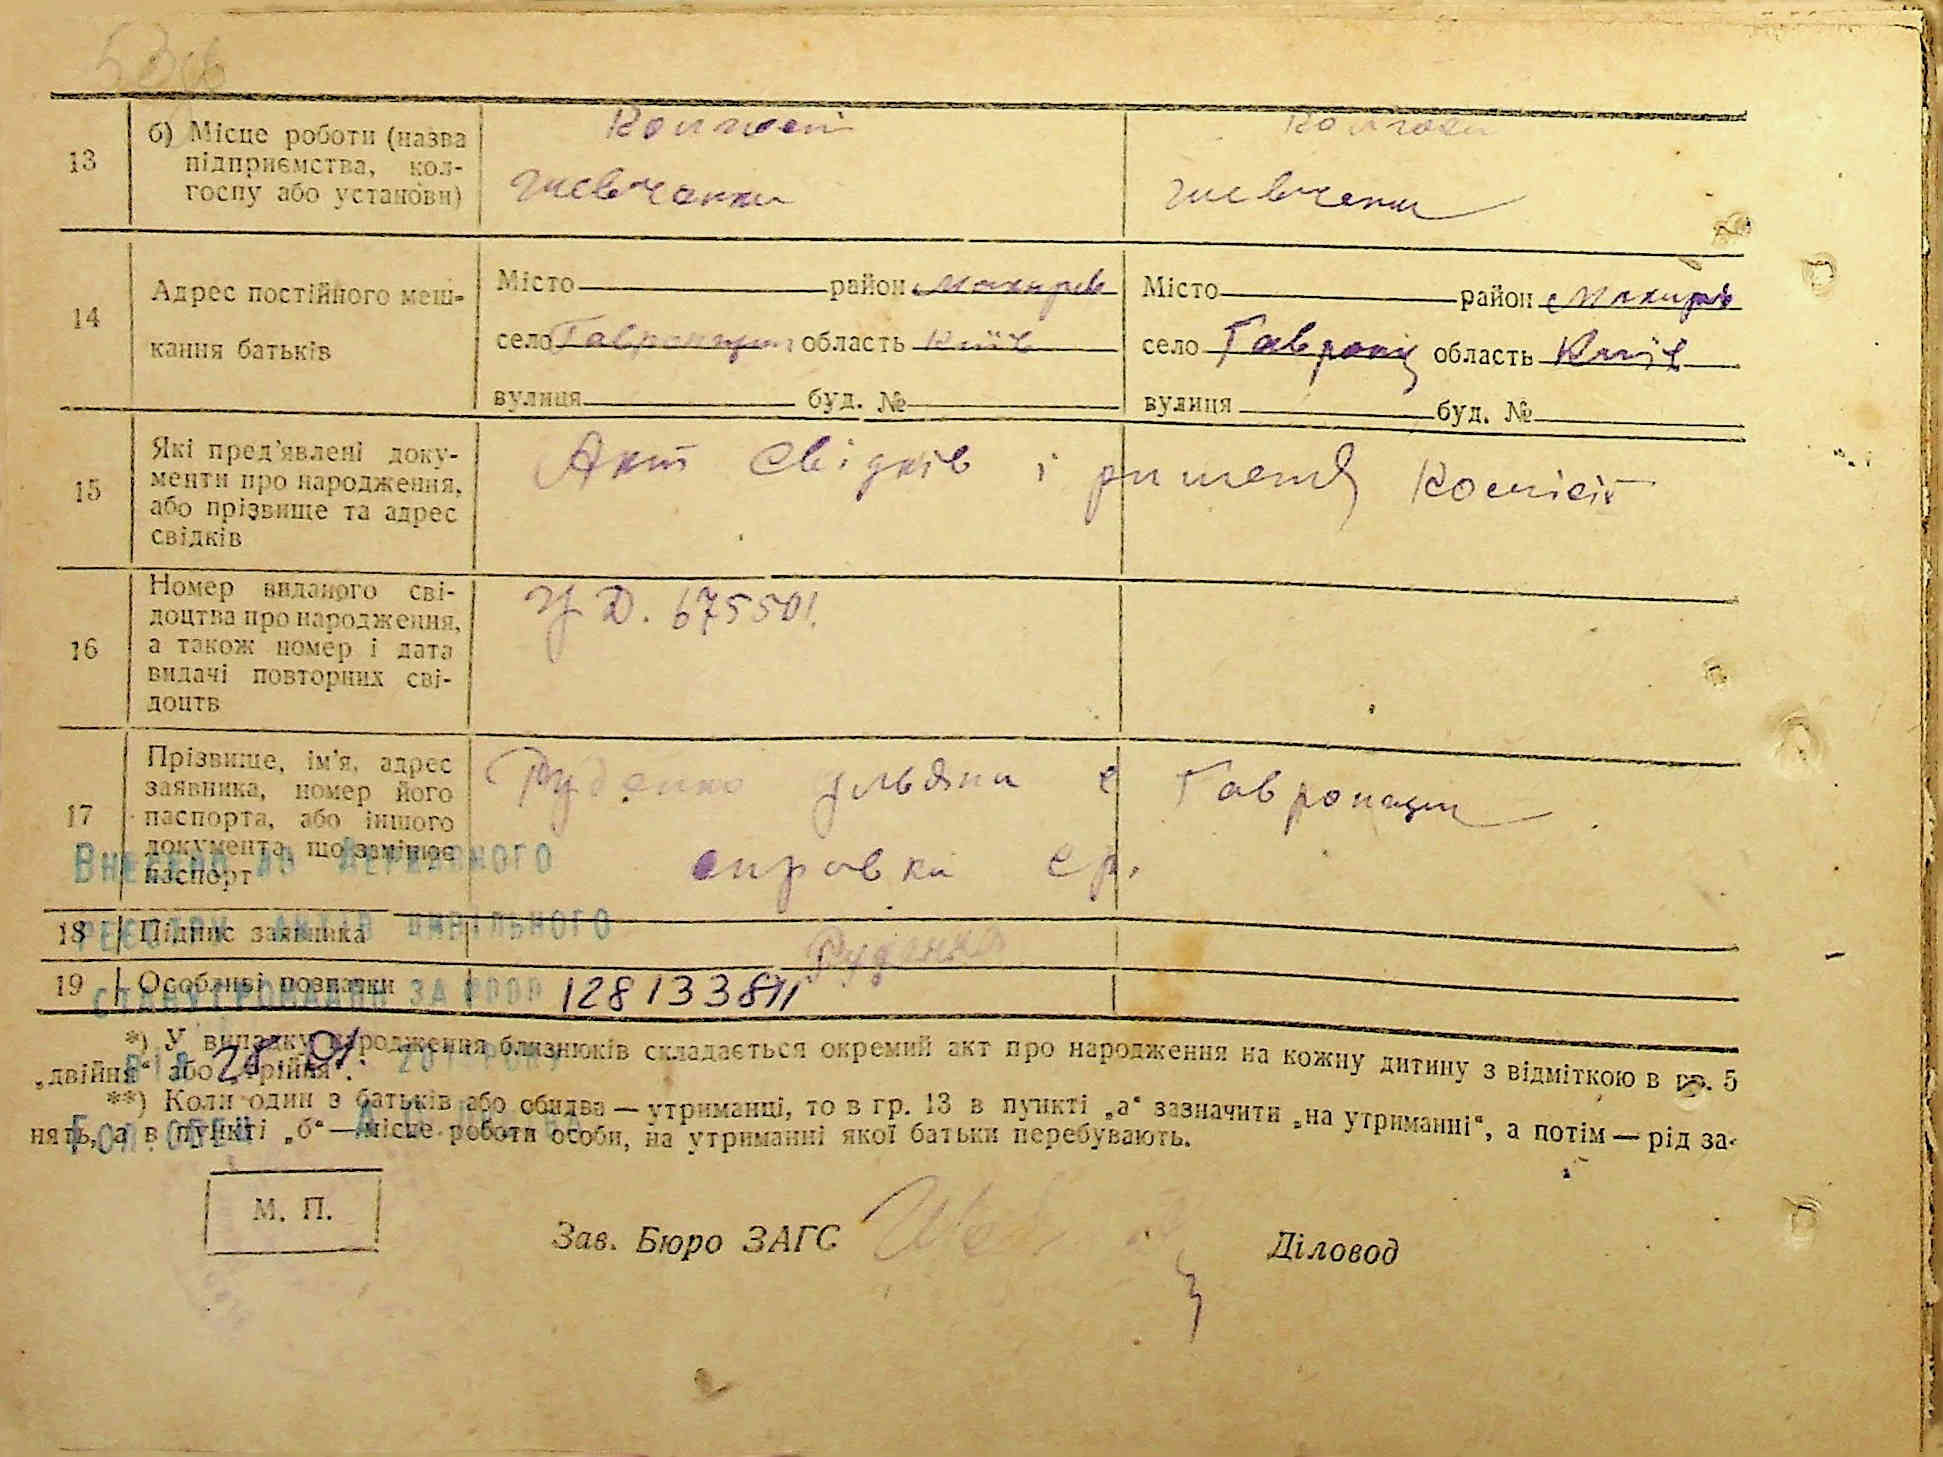 13
б) Місце роботи (назва
підприємства, кол-
госпу або установи)
Колгосп
Шевченка
Шевченка
14
Адрес постійного меш-
кання батьків
Місто район Макарів
село Гавронщина область Київ
вулиця буд. №
Місто район Макарів
село Гавронщ область Київ
вулиця буд. №
15
Які пред'явлені доку-
менти про народження,
або прізвище та адрес
свідків
Акт свідків і комісії
16
Номер виданого сві-
доцтва про народження,
а також номер і дата
видачі повторних сві-
доцтв
675501
17
Прізвище, ім'я, адрес
заявника, номер його
паспорта, або іншого
документа, що замінює
паспорт
Руденко Уляна с Гавронщина
справка ср.
Внесено до Державного
реєстру актів цивільного
18
Підпис заявника
Руденко
19
Особливі позначки
128133811
*) У випадку народження близнюків складається окремий акт про народження на кожну дитину з відміткою в гр. 5
„двійня“ або „трійня“.
**) Коли один з батьків або обидва — утриманці, то в гр. 13 в пункті „а“ зазначити „на утриманні“, а потім — рід за-
нять, а в пункті „б“ — місце роботи особи, на утриманні якої батьки перебувають.
М. П.
Зав. Бюро ЗАГС
Діловод